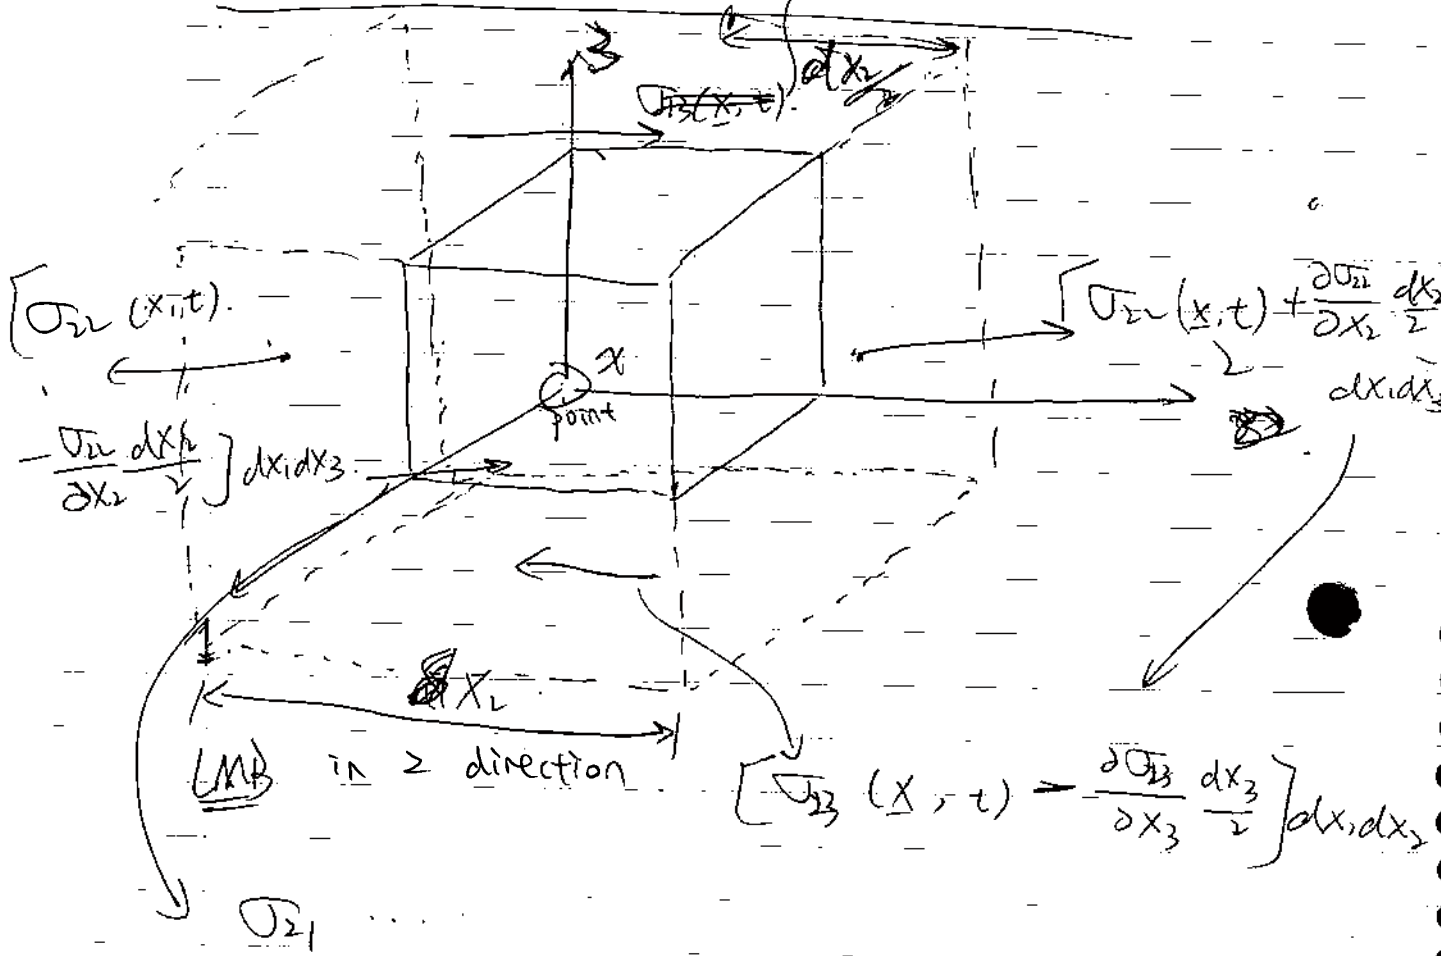 3
dx₂/2
σ₁₃(x, t)
[σ₂₂ (x, t).
- σ₂₂/∂x₂ dx₂/2 ] dx₁dx₃
x
point
[σ₂₂ (x, t) + ∂σ₂₂/∂x₂ dx₂/2
2
dx₁dx₃
dx₂
LMB in 2 direction
[σ₂₃ (x, t) - ∂σ₂₃/∂x₃ dx₃/2 ] dx₁dx₂
σ₂₁ ....